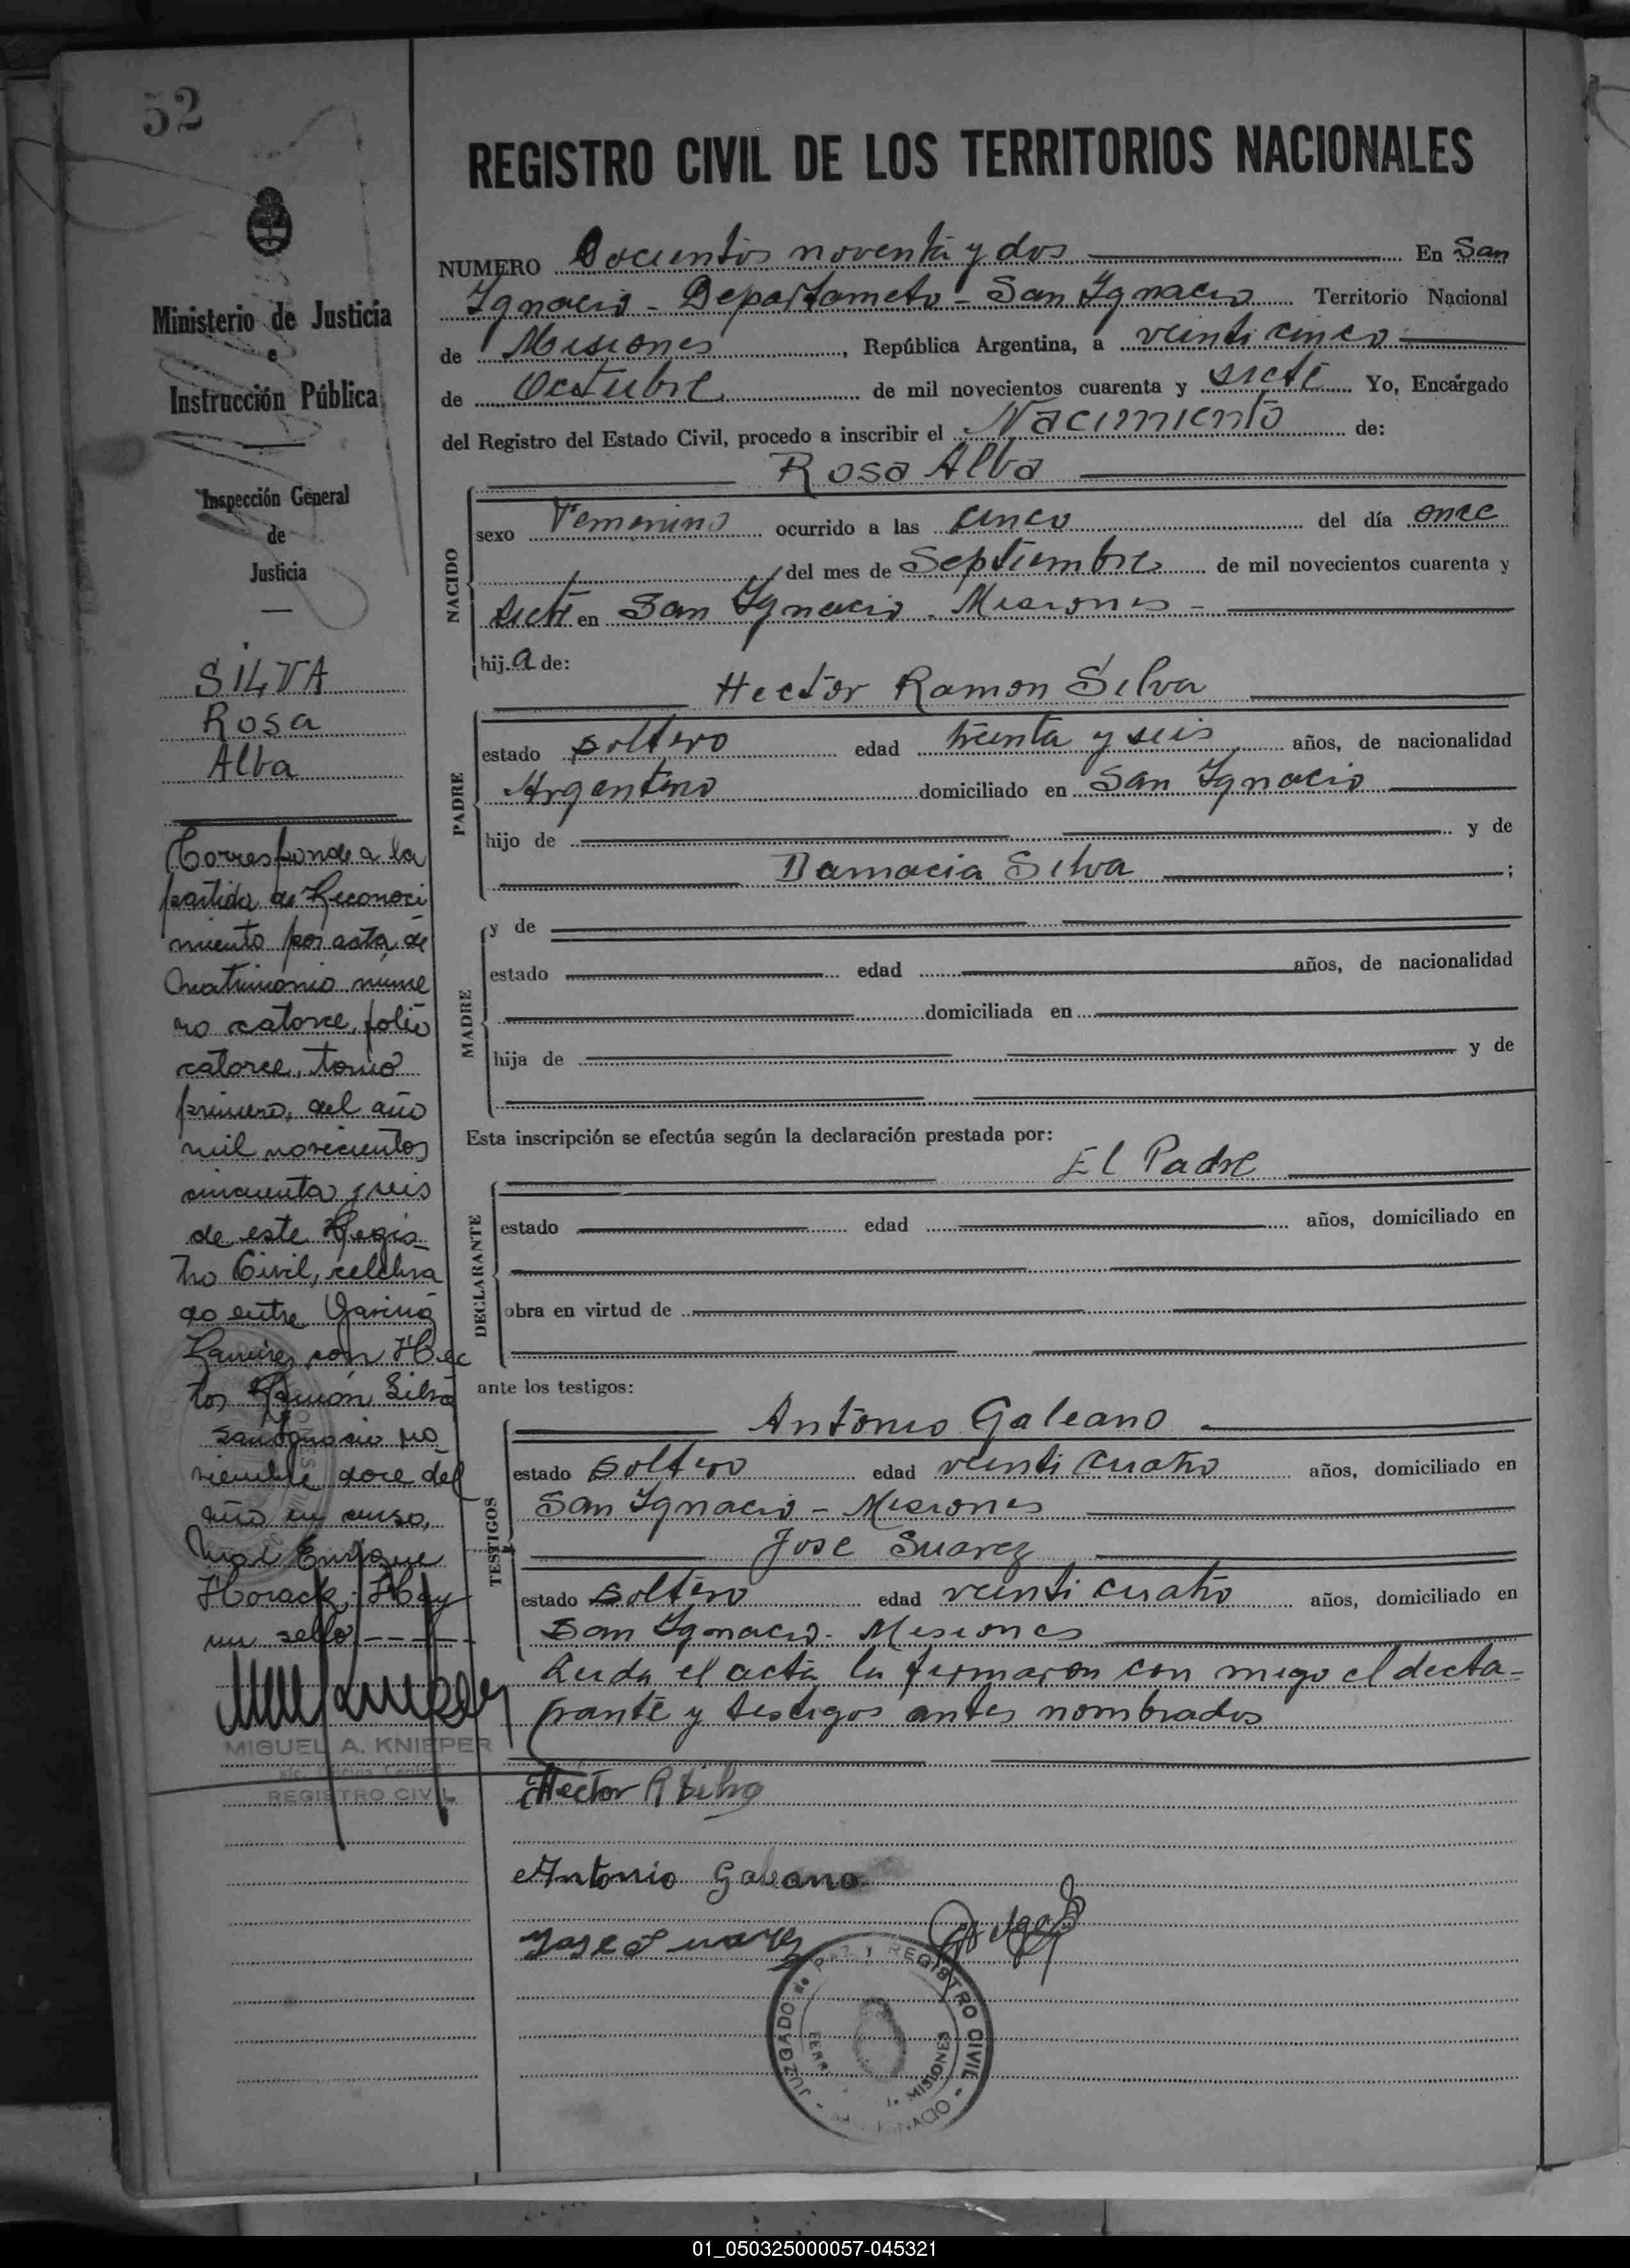 52
REGISTRO CIVIL DE LOS TERRITORIOS NACIONALES
Ministerio de Justicia
e
Instrucción Pública
Inspección General
de
Justicia
SILVA
Rosa
Alba
Corresponde a la
partida de Reconoci
miento por acta de
matrimonio núme
ro catorce, folio
catorce, tomo
primero, del año
mil novecientos
cincuenta y seis
de este Regis_
tro Civil, celebra
do entre
Ramirez con Héc
tor Ramón Silva
San Ignacio no
viembre doce del
año en curso,
Enrique
Horack; Hay
un sello - - -
MIGUEL A. KNIEPER
REGISTRO CIVIL
NUMERO Docientos noventa y dos En San
Ignacio - Departameto - San Ignacio Territorio Nacional
de Misiones, República Argentina, a veinti cinco
de Octubre de mil novecientos cuarenta y siete Yo, Encargado
del Registro del Estado Civil, procedo a inscribir el Nacimiento de:
Rosa Alba
NACIDO
sexo Femenino ocurrido a las cinco del día once
del mes de Septiembre de mil novecientos cuarenta y
siete en San Ignacio - Misiones -
hij.a de:
Hector Ramon Silva
PADRE
estado soltero edad treinta y seis años, de nacionalidad
Argentino domiciliado en San Ignacio
hijo de y de
Damacia Silva ;
MADRE
y de
estado edad años, de nacionalidad
domiciliada en
hija de y de
Esta inscripción se efectúa según la declaración prestada por:
El Padre
DECLARANTE
estado edad años, domiciliado en
obra en virtud de
ante los testigos:
TESTIGOS
Antonio Galeano
estado soltero edad veinti cuatro años, domiciliado en
San Ignacio - Misiones
Jose Suarez
estado soltero edad veinti cuatro años, domiciliado en
San Ignacio - Misiones
Leida el acta la firmaron con migo el decla-
rante y testigos antes nombrados
Hector R Silva
Antonio Galeano
Jose Suarez
JUZGADO de PAZ Y REGISTRO CIVIL
MISIONES
01_050325000057-045321